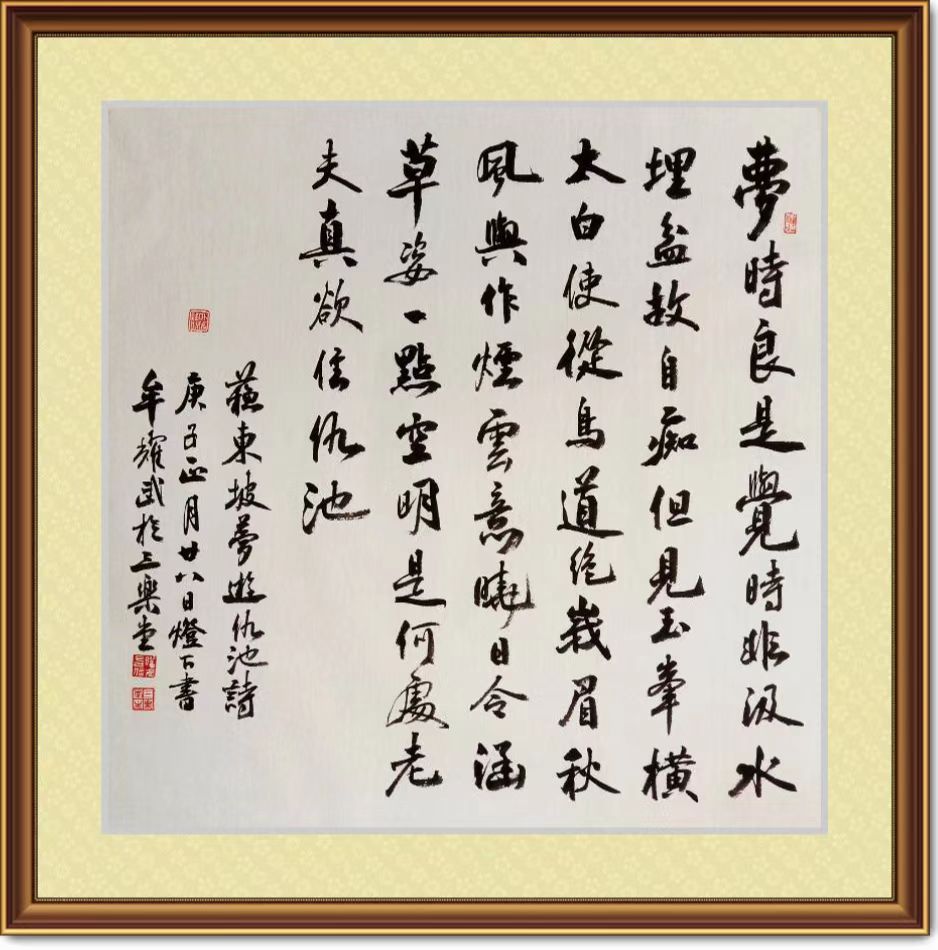 夢時良是覺時非汲水
埋盆故自痴但見玉峯橫
太白使從鳥道絕峩眉秋
風與作煙雲意曉日令涵
草姿一點空明是何處老
夫真欲住仇池
蘓東坡夢遊仇池詩
庚子正月廿八日燈下書
牟耀武於三樂堂